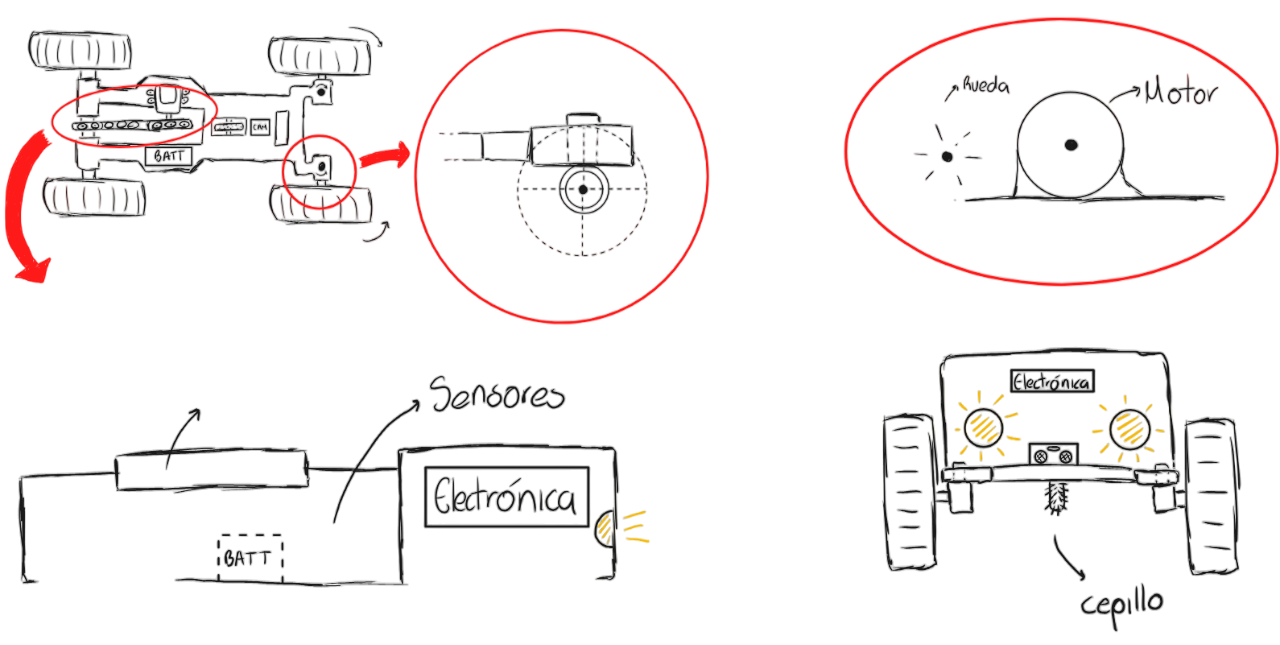 CAM
BATT
Rueda
Motor
Sensores
Electrónica
BATT
Electrónica
cepillo